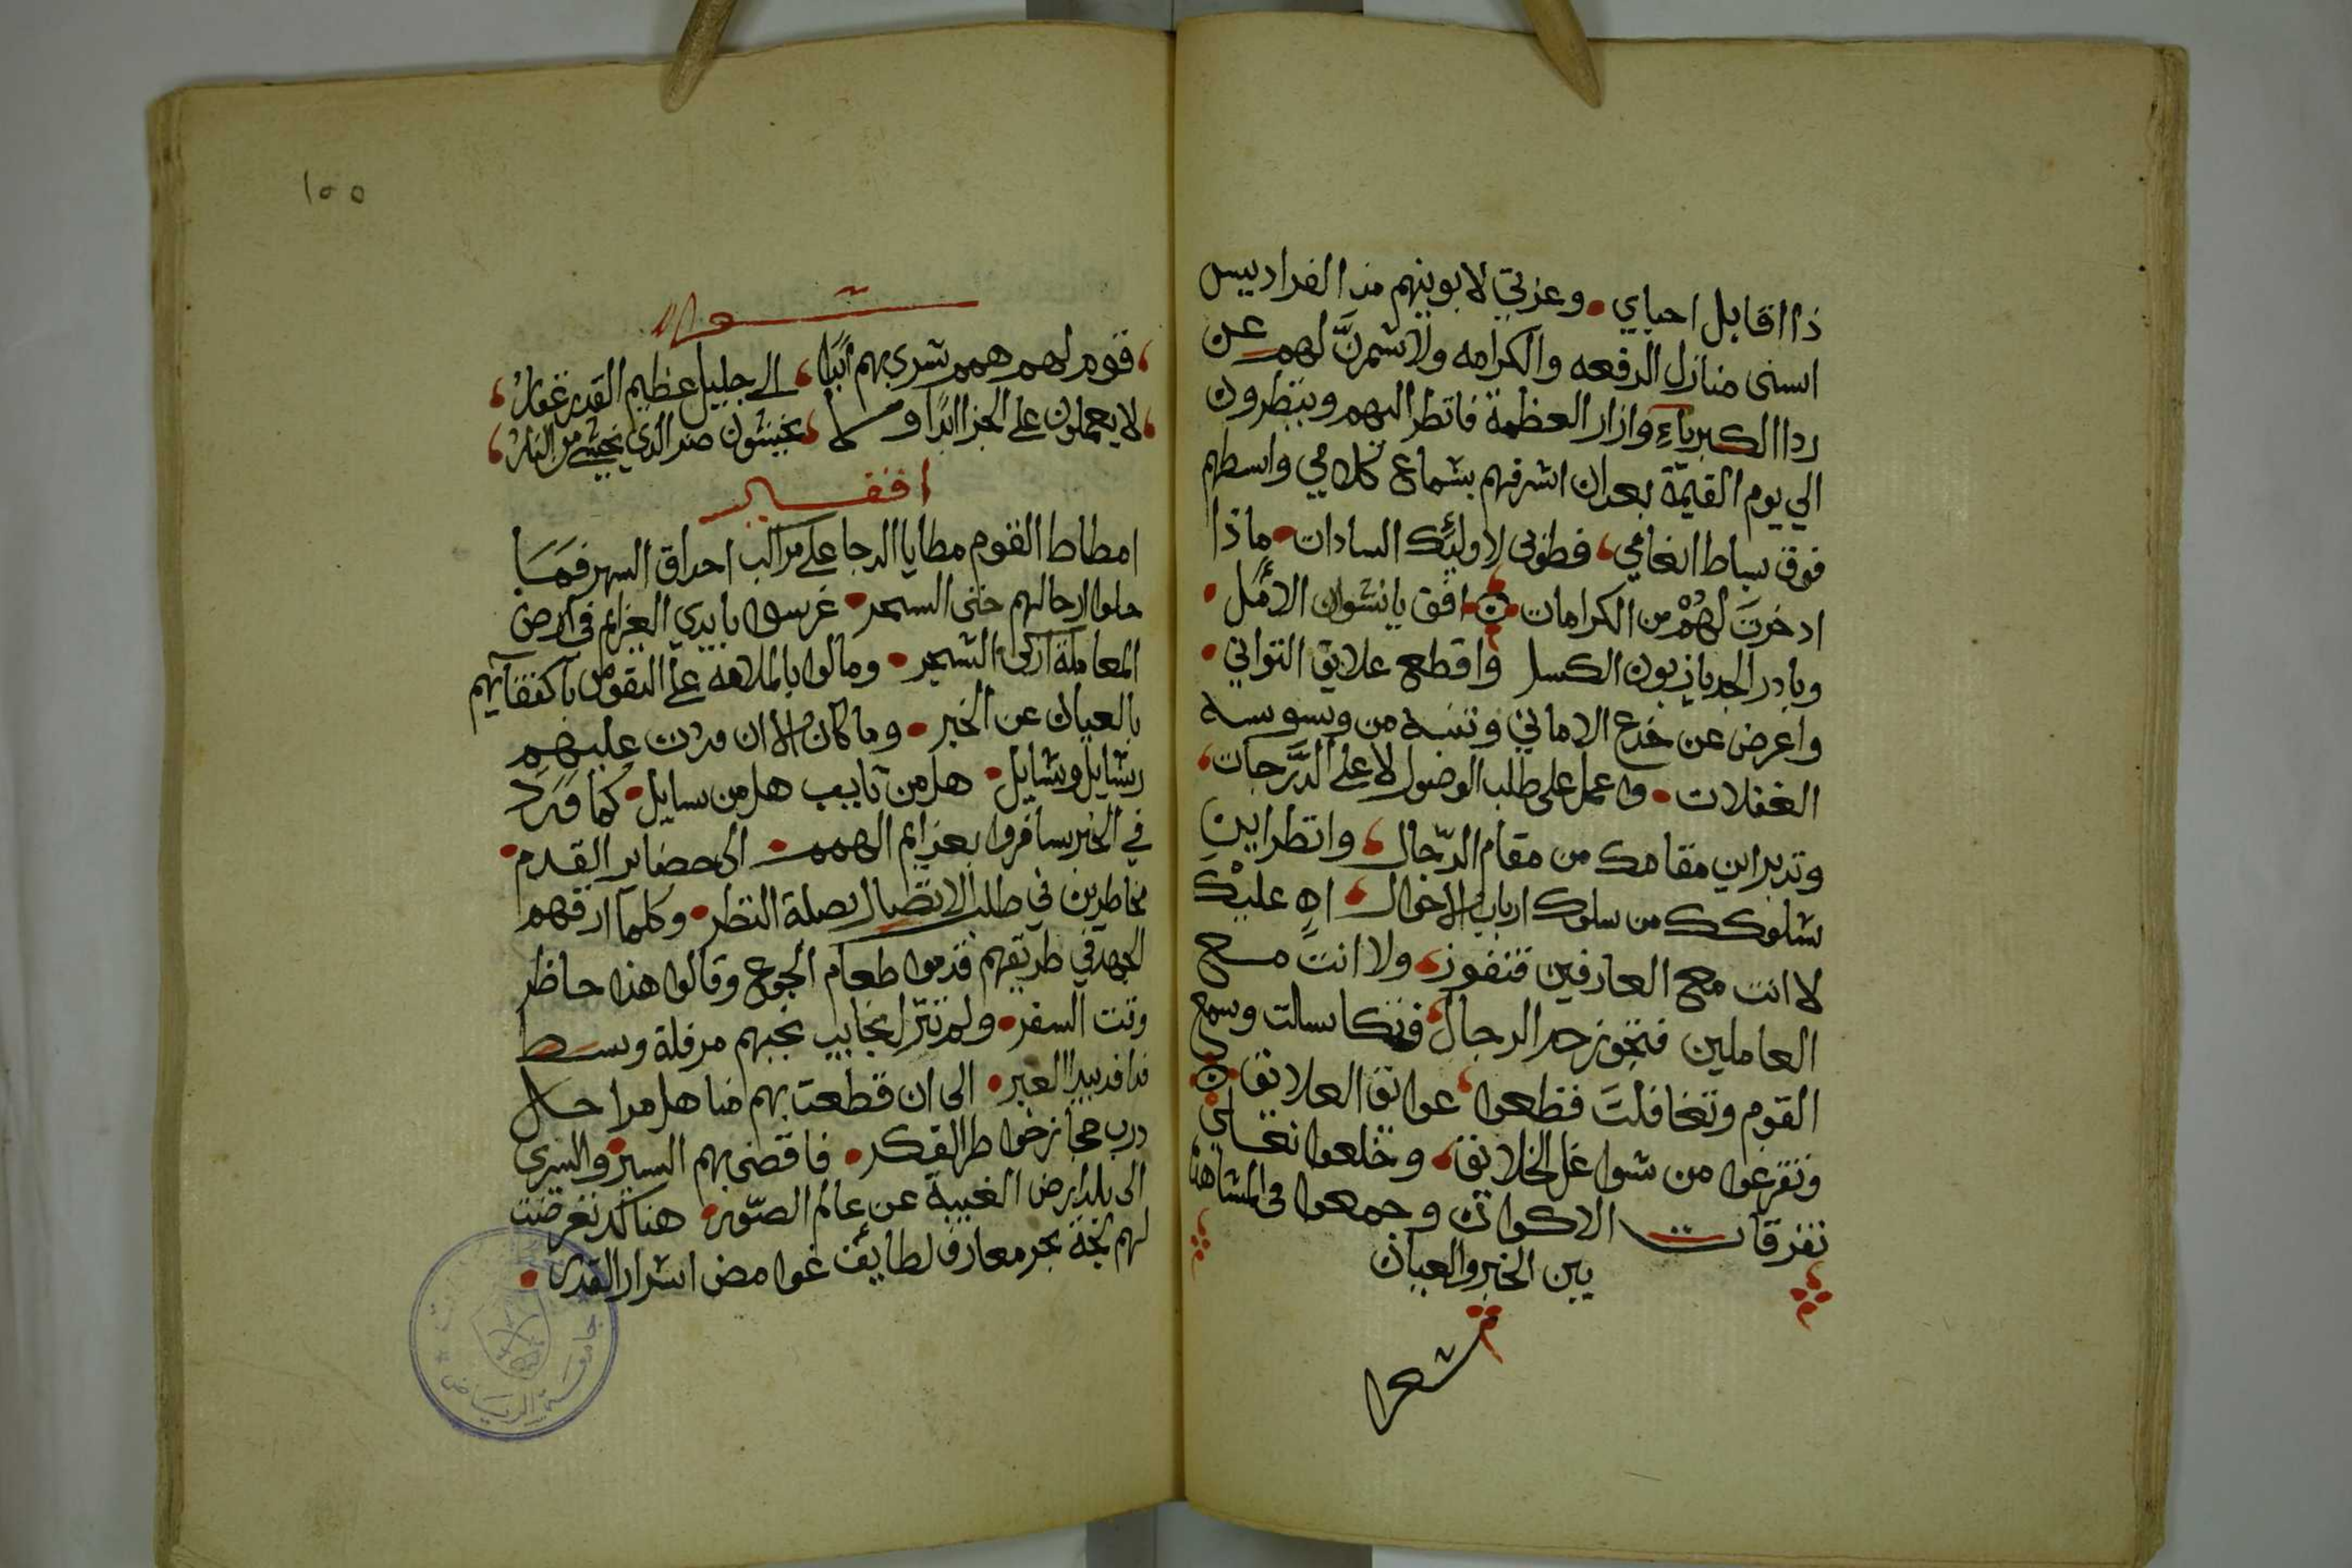 ذا اقابل احباي • وعزتي لابوينهم من الفراديس
اسنى منازل الرفعه والكرامه ولاشمرنَّ لهم عن
ردا الكبرياءِ وازار العظمة فانظر اليهم وينظرون
الي يوم القيمة بعد ان اشرفهم بسماع كلامي واسطهم
فوق بساط انعامي، فطوبى لاولئك السادات • ماذا
ادخرتَ لهُمْ من الكرامات ۞ افق يا نشوان الامل •
وبادر الجد يا زبون الكسل واقطع علايق التواني •
واعرض عن خدع الاماني وتنبه من وسوسة
الغفلات • واعمل على طلب الوصول لا على الدَّرجات،
وتدبر اين مقامك من مقام الرّجال، وانظر اين
سلوكك من سلوك ارباب الاحوال • اهِ عليْك
لا انت مع العارفين فتفوز، ولا انتَ مع
العاملين فتجوز حد الرجال، فتكاسلت وسمع
القوم وتغافلتَ فقطعوا، عوائق العلائق ۞
وتفرغوا من شواغل الخلائق، وخلعوا نعلي
تفرقات الاكوان وجمعوا في المشاهد
بين الخبر والعيان
شعر
١٥٥
شعر
، قوم لهم همم تسري بهم ابدًا، الى جليل عظيم القدر غفارُ،
، لا يعملون على الجزا ابدًا ولا، يخشون منه الذي يخشى من النارُ،
افقير
امطاط القوم مطايا الدجا على مراكب احداق السهر فمَا
حلوا رحالهم حتى السحر • غرسوا بايدي العزايم في ارض
المعاملة ازكى الشجر • ومالوا بالملامه على النفوس باكتفايهم
بالعيان عن الخبر • وما كان الا ان مرت عليهم
رسايل وسايل • هل من تايب هل من سايل • كما وَرَد
في الخبر سافروا بعزايم الهمم • الى حضاير القدم •
مخاطرين في طلب الاتصال بصلة النظر • وكلما ارقهم
الجهد في طريقهم قدموا طعام الجوع وقالوا هذا حاظر
وقت السفر • ولم تزل نجايب نجبهم مرفلة وسط
فدافد بيدا العبر • الى ان قطعت بهم مناهل مراحل
درب مجاز خواطر الفكر • فاقضى بهم السير والسرى
الى بلد ارض الغيبة عن عالم الصّور • هناك تعرضت
لهم لجة بحر معارف لطائف غوامض اسرار القدر •
جامعة الرياض